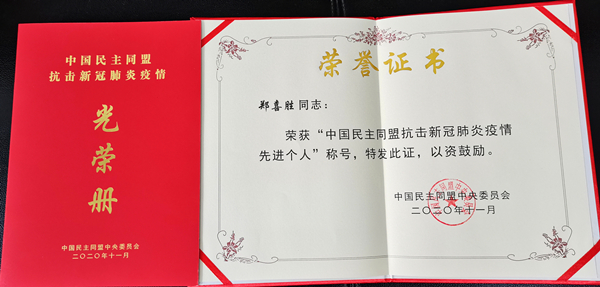 中国民主同盟
抗击新冠肺炎疫情
光荣册
中国民主同盟中央委员会
二〇二〇年十一月
荣誉证书
郑喜胜同志：
荣获“中国民主同盟抗击新冠肺炎疫情
先进个人”称号，特发此证，以资鼓励。
中国民主同盟中央委员会
二〇二〇年十一月